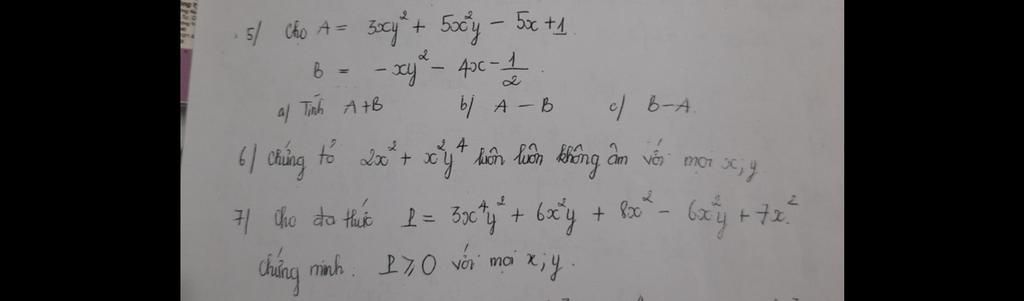 5/ Cho A = 3xy² + 5x²y - 5x + 1
B = -xy² - 4x - 1/2.
a/ Tính A+B b/ A - B c/ B-A.
6/ Chứng tỏ 2x² + x²y⁴ luôn luôn không âm với mọi x; y.
7/ Cho đa thức P = 3x⁴y² + 6x²y + 8x² - 6x²y + 7x².
chứng minh: P ⩾ 0 với mọi x; y.